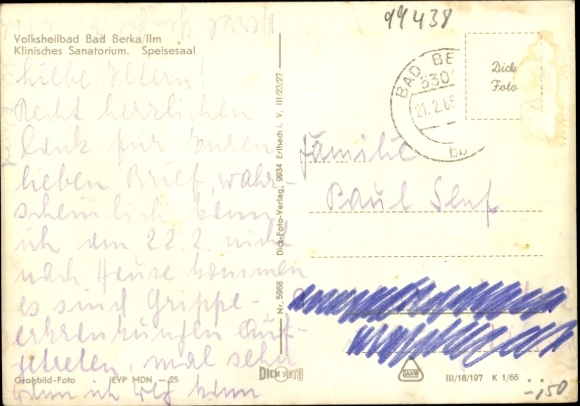 99438
Volksheilbad Bad Berka/Ilm
Klinisches Sanatorium. Speisesaal
Liebe Eltern!
Recht herzlichen
Dank für Euren
lieben Brief, wahr-
scheinlich kann
ich am 22.2. nicht
nach Hause kommen
es sind Grippe-
erkrankungen auf-
getreten, mal sehn
wann ich weg kann
Großbild-Foto EVP MDN -,25
Nr. 5968 Dick-Foto-Verlag, 9934 Erlbach i. V. III/23/27
BAD BE
530
21.2.6
Dick
Foto
Familie
Paul Senf
DICK
III/18/197 K 1/66
-,50